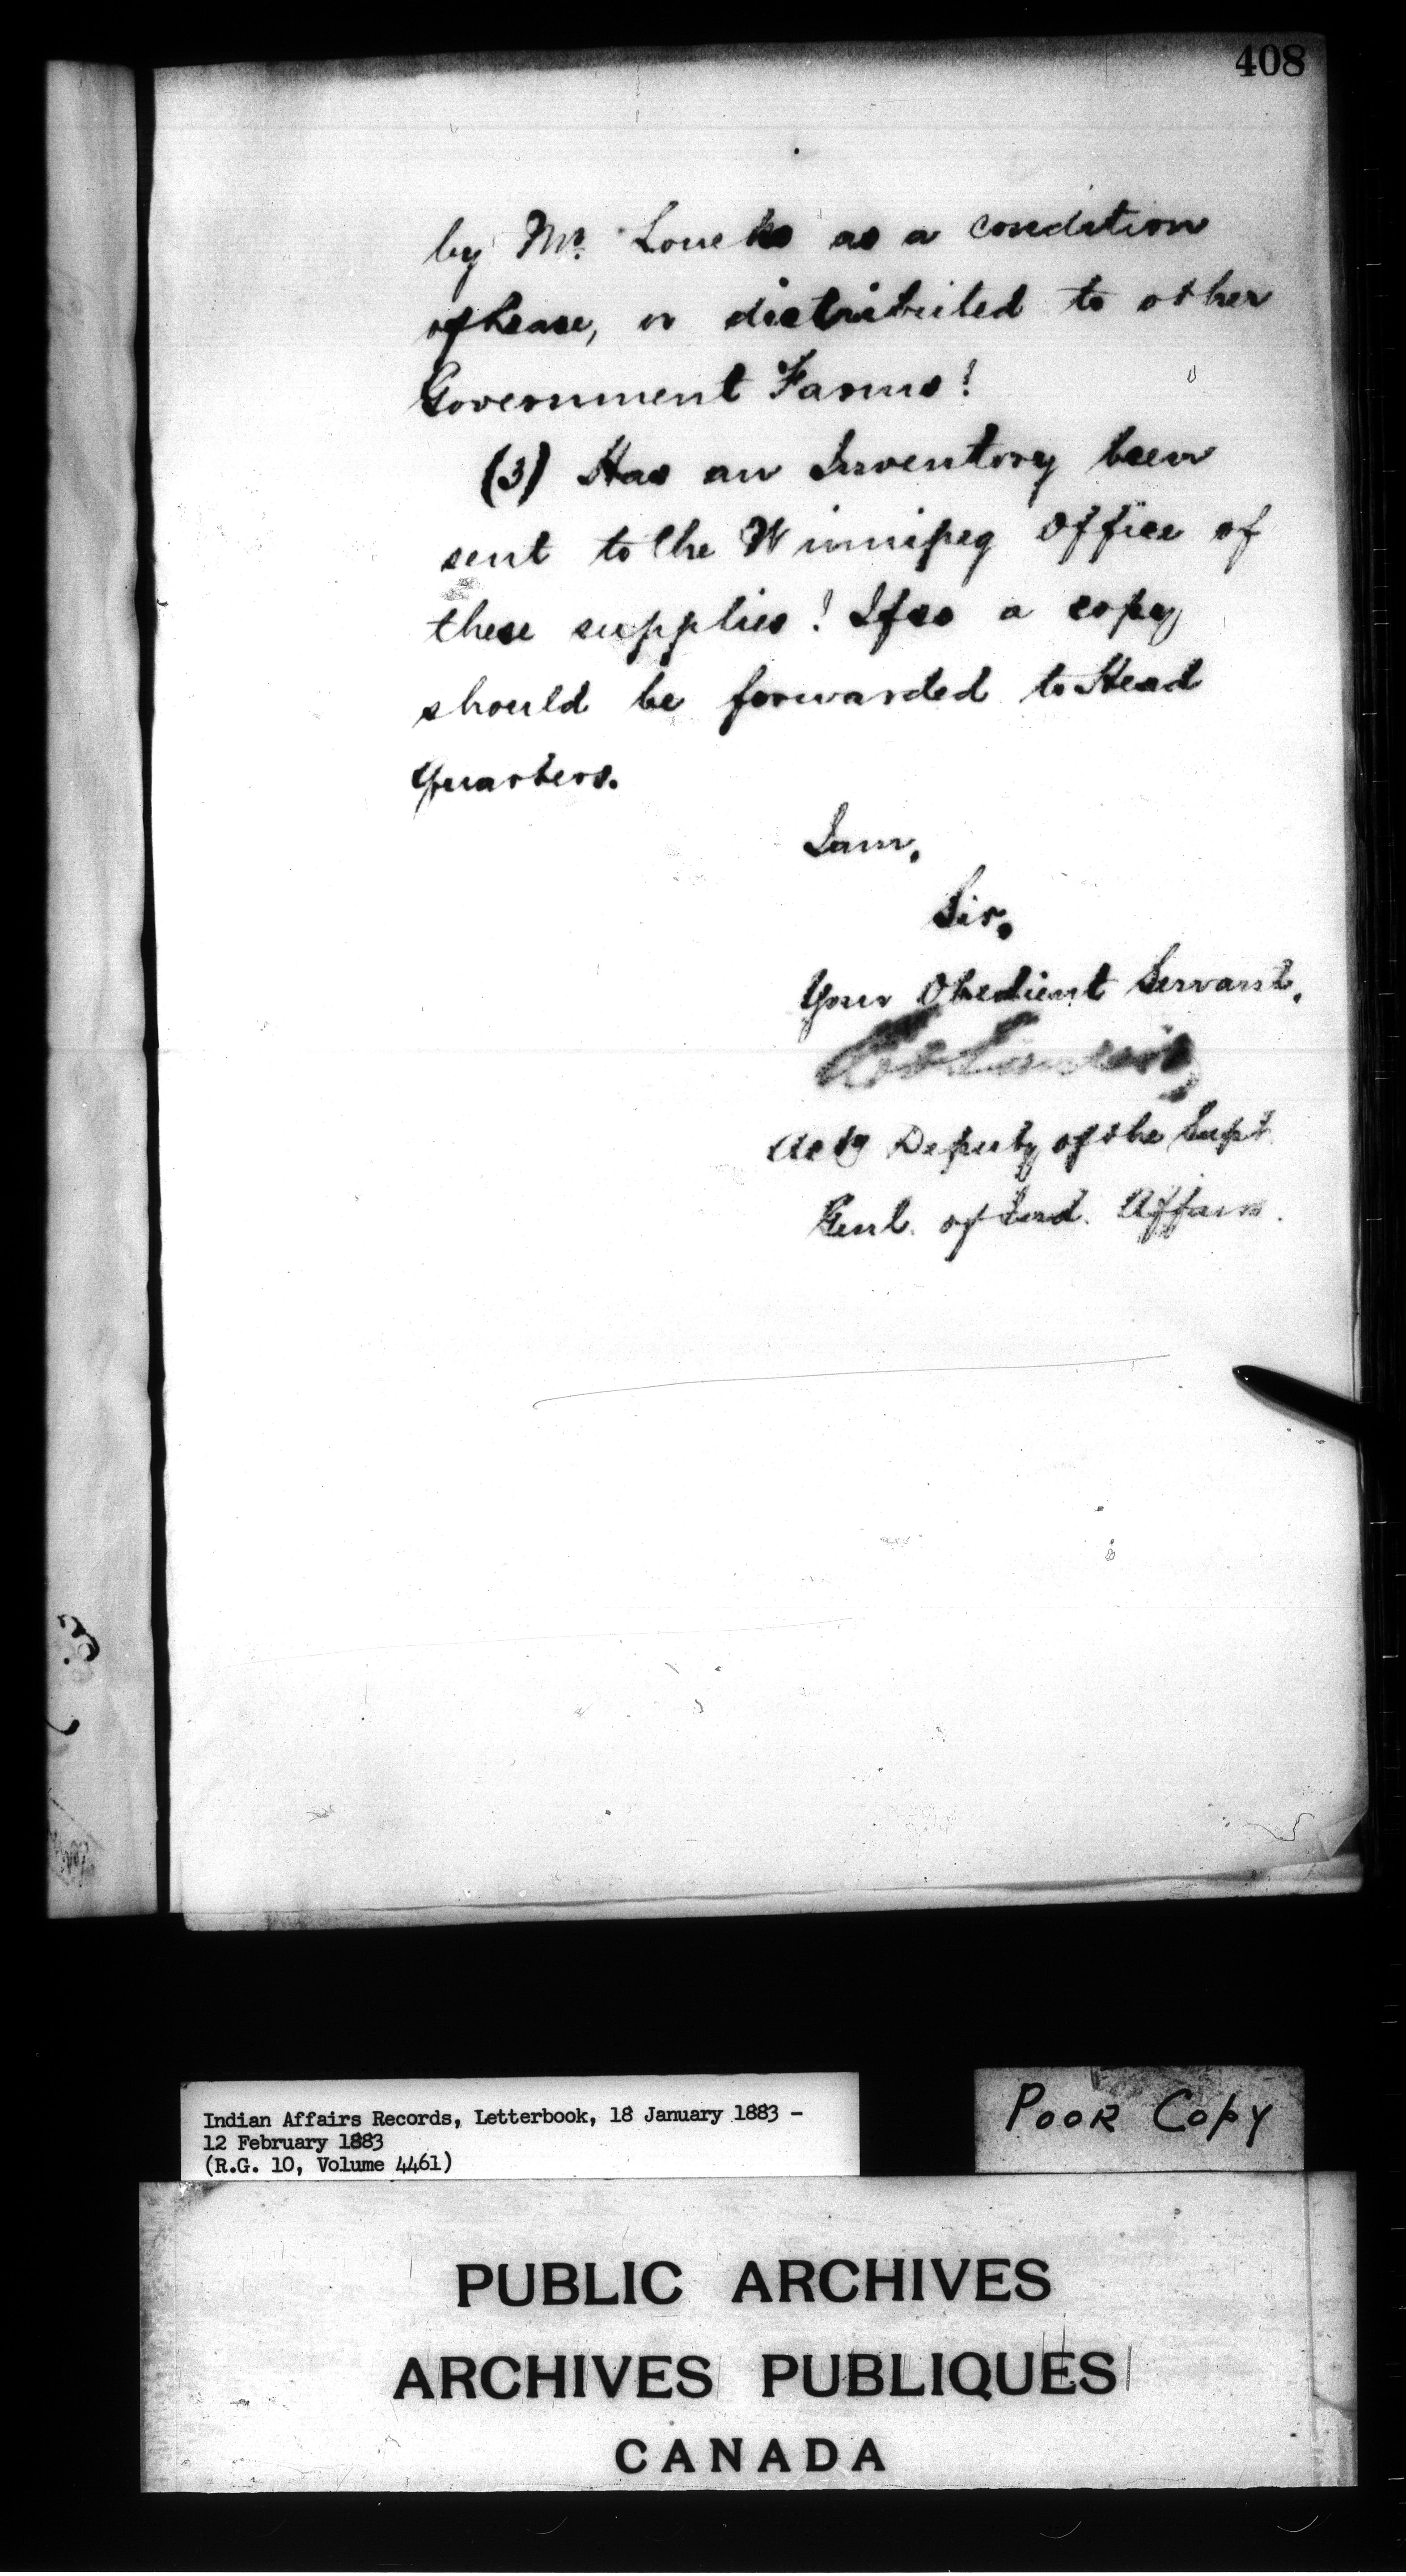 408
by Mr. Loucks as a condition
of Lease, or distributed to other
Government Farms!
(3) Has an Inventory been
sent to the Winnipeg Office of
these supplies! If so a copy
should be forwarded to Head
Quarters.
I am,
Sir,
Your Obedient Servant,
Actg Deputy of the Supt
Genl. of Ind. Affairs.
Indian Affairs Records, Letterbook, 18 January 1883 -
12 February 1883
(R.G. 10, Volume 4461)
POOR COPY
PUBLIC ARCHIVES
ARCHIVES PUBLIQUES
CANADA